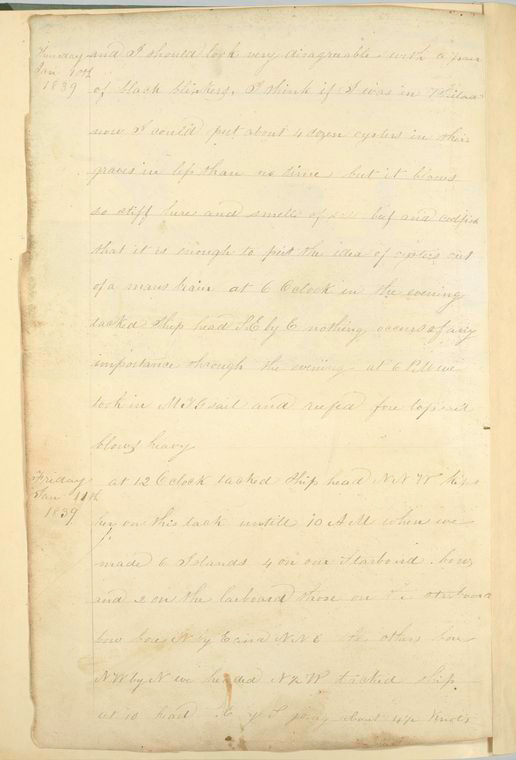 Thursday and I should look very disagreeable with a pair
Jan 10th
1839
of black blinkers. I think if I was in Philaa
now I could put about 4 dozen oysters in their
graves in less than no time but it blows
so stiff here and smells of beef and codfish
that it is enough to put the idea of oysters out
of a mans brain at 6 Oclock in the evening
tacked Ship head S.E by E nothing occurs of any
importance through the evening at 6 P.M we
took in M T G sail and reefed fore topsail
blows heavy
Friday
Jan 11th
1839
at 12 Oclock tacked Ship head N N W kept
her on this tack untill 10 A M when we
made 6 Islands 4 on our Starboard bow
and 2 on the larboard those on the starboard
bow bore N by E and N N E the others bore
N W by N we headed tacked ship
at 10 head going about 4½ Knots